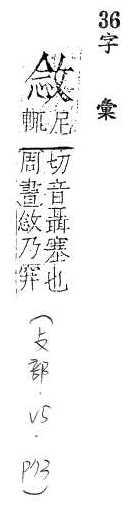 36
字彙
敜
尼輒
切音聶塞也
周書敜乃穽
(攴部.V5.P13)